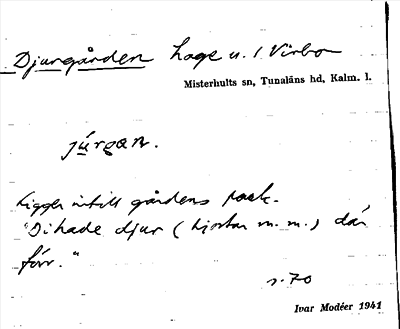 Djurgården hage u. / Virbo
Misterhults sn, Tunaläns hd, Kalm. l.
júrgan.
Ligger intill gårdens park.
"Di hade djur (hjortar m.m.) där
förr."
s. 70
Ivar Modéer 1941